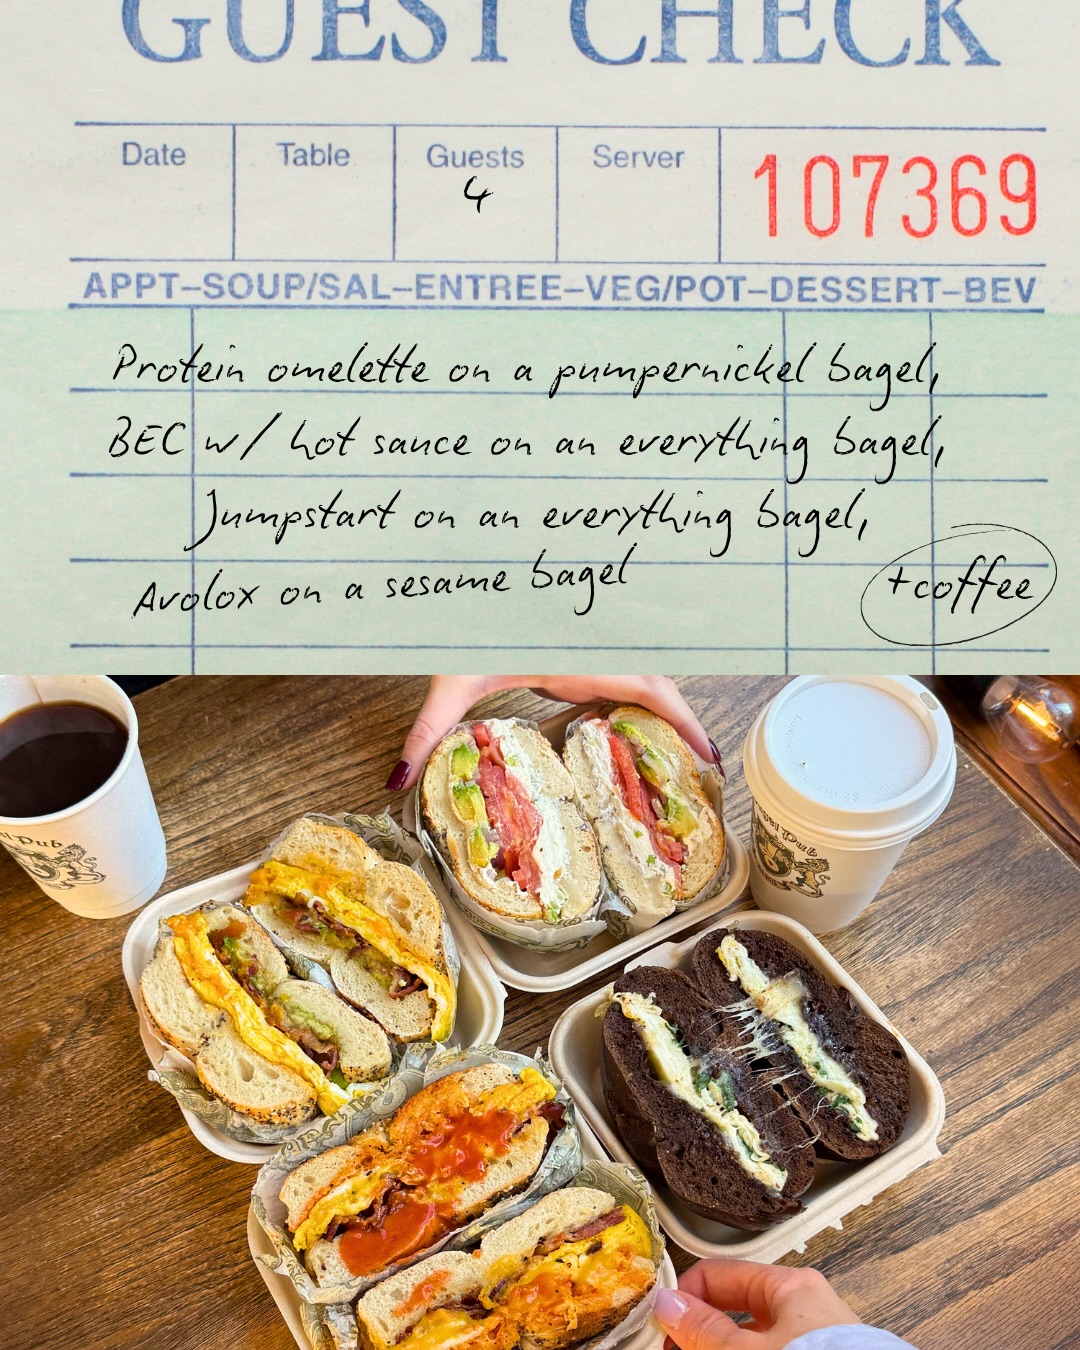 GUEST CHECK
Date Table Guests Server 107369
4
APPT–SOUP/SAL–ENTREE–VEG/POT–DESSERT–BEV
Protein omelette on a pumpernickel bagel,
BEC w/ hot sauce on an everything bagel,
Jumpstart on an everything bagel,
Avolox on a sesame bagel
+coffee
Pub
Pub